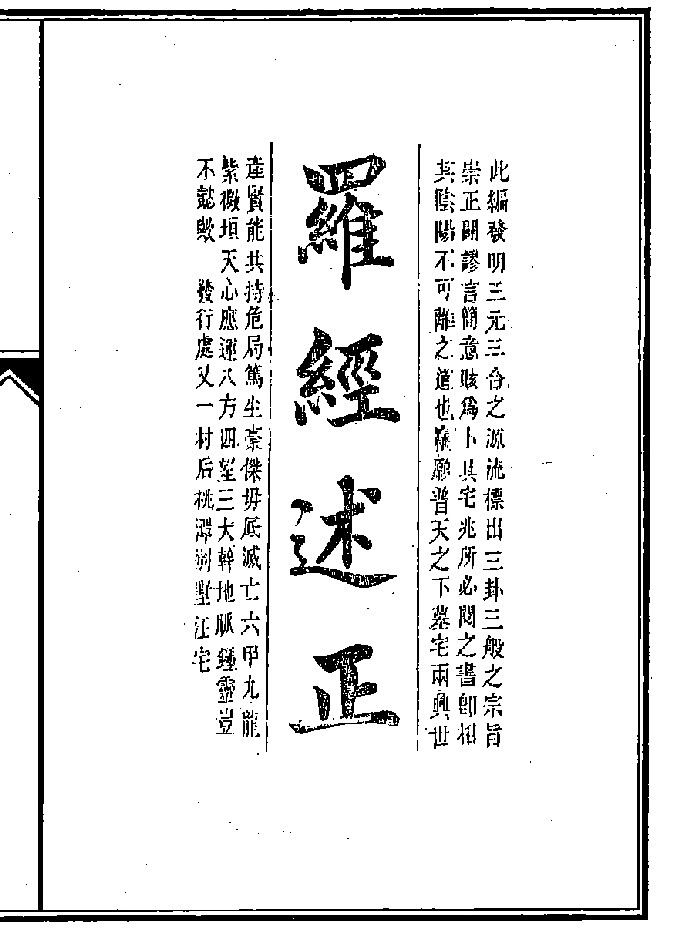 此編發明三元三合之源流標出三卦三般之宗旨
崇正闢謬言簡意賅爲卜其宅兆所必閱之書卽相
其陰陽不可離之道也竊願普天之下墓宅兩興世
羅經述正
產賢能共持危局篤生豪傑毋厎滅亡六甲九龍
紫微垣天心應運八方四壁三大幹地脈鍾靈豈
不懿歟 發行處又一村后桃潭別墅汪宅